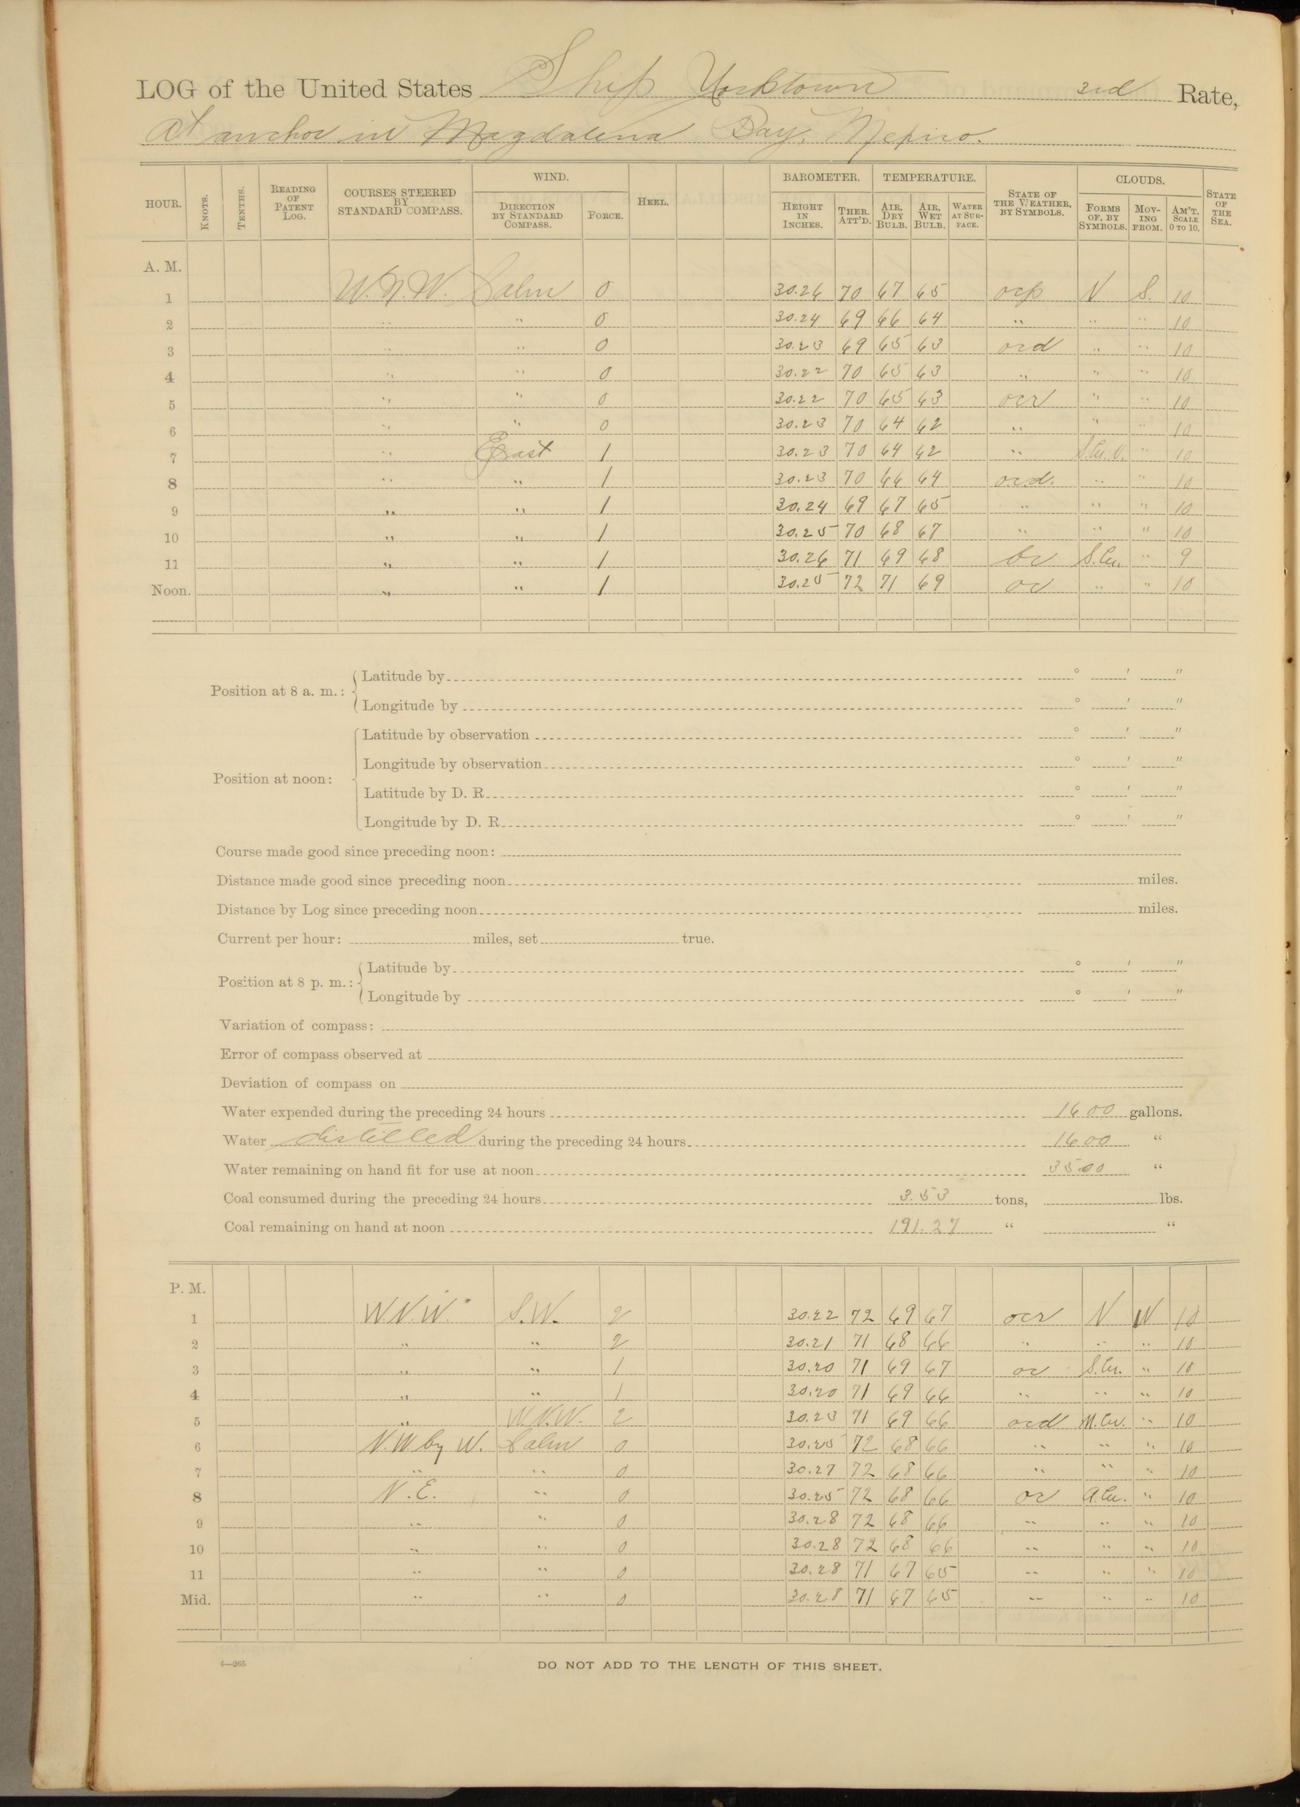 LOG of the United States Ship Yorktown 3rd Rate,
At anchor in Magdalena Bay, Mexico.
HOUR. KNOTS. TENTHS. READING OF PATENT LOG. COURSES STEERED BY STANDARD COMPASS. WIND. DIRECTION BY STANDARD COMPASS. FORCE. HEEL. BAROMETER. HEIGHT IN INCHES. THER. ATT'D. TEMPERATURE. AIR, DRY BULB. AIR, WET BULB. WATER AT SURFACE. STATE OF THE WEATHER, BY SYMBOLS. CLOUDS. FORMS OF, BY SYMBOLS. MOVING FROM. AM'T, SCALE 0 TO 10. STATE OF THE SEA.
A. M.
1 W.N.W. Calm 0 30.26 70 67 65 ocp N S. 10
2 " " 0 30.24 69 66 64 " " " 10
3 " " 0 30.23 69 65 63 ocd " " 10
4 " " 0 30.22 70 65 63 " " " 10
5 " " 0 30.22 70 65 63 ocr " " 10
6 " " 0 30.23 70 64 62 " " " 10
7 " East 1 30.23 70 64 62 " " 10
8 " " 1 30.23 70 66 64 ocd. " " 10
9 " " 1 30.24 69 67 65 " " " 10
10 " " 1 30.25 70 68 67 " " " 10
11 " " 1 30.26 71 69 68 bc S.Cu. " 9
Noon. " " 1 30.25 72 71 69 oc " " 10
Position at 8 a. m.: Latitude by ° ′ ″
Longitude by ° ′ ″
Position at noon: Latitude by observation ° ′ ″
Longitude by observation ° ′ ″
Latitude by D. R. ° ′ ″
Longitude by D. R. ° ′ ″
Course made good since preceding noon:
Distance made good since preceding noon miles.
Distance by Log since preceding noon miles.
Current per hour: miles, set true.
Position at 8 p. m.: Latitude by ° ′ ″
Longitude by ° ′ ″
Variation of compass:
Error of compass observed at
Deviation of compass on
Water expended during the preceding 24 hours 1600 gallons.
Water distilled during the preceding 24 hours 1600 "
Water remaining on hand fit for use at noon 3500 "
Coal consumed during the preceding 24 hours 3.53 tons, lbs.
Coal remaining on hand at noon 191.27 " "
P. M.
1 W.N.W. S.W. 2 30.22 72 69 67 ocr N W 10
2 " " 2 30.21 71 68 66 " " " 10
3 " " 1 30.20 71 69 67 oc S.Cu. " 10
4 " " 1 30.20 71 69 66 " " " 10
5 " W.N.W. 2 30.23 71 69 66 ocd " 10
6 N.W. by W. Calm 0 30.25 72 68 66 " " " 10
7 " " 0 30.27 72 68 66 " " " 10
8 N.E. " 0 30.25 72 68 66 oc A.Cu. " 10
9 " " 0 30.28 72 68 66 " " " 10
10 " " 0 30.28 72 68 66 " " " 10
11 " " 0 30.28 71 67 65 " " " 10
Mid. " " 0 30.28 71 67 65 " " " 10
DO NOT ADD TO THE LENGTH OF THIS SHEET.